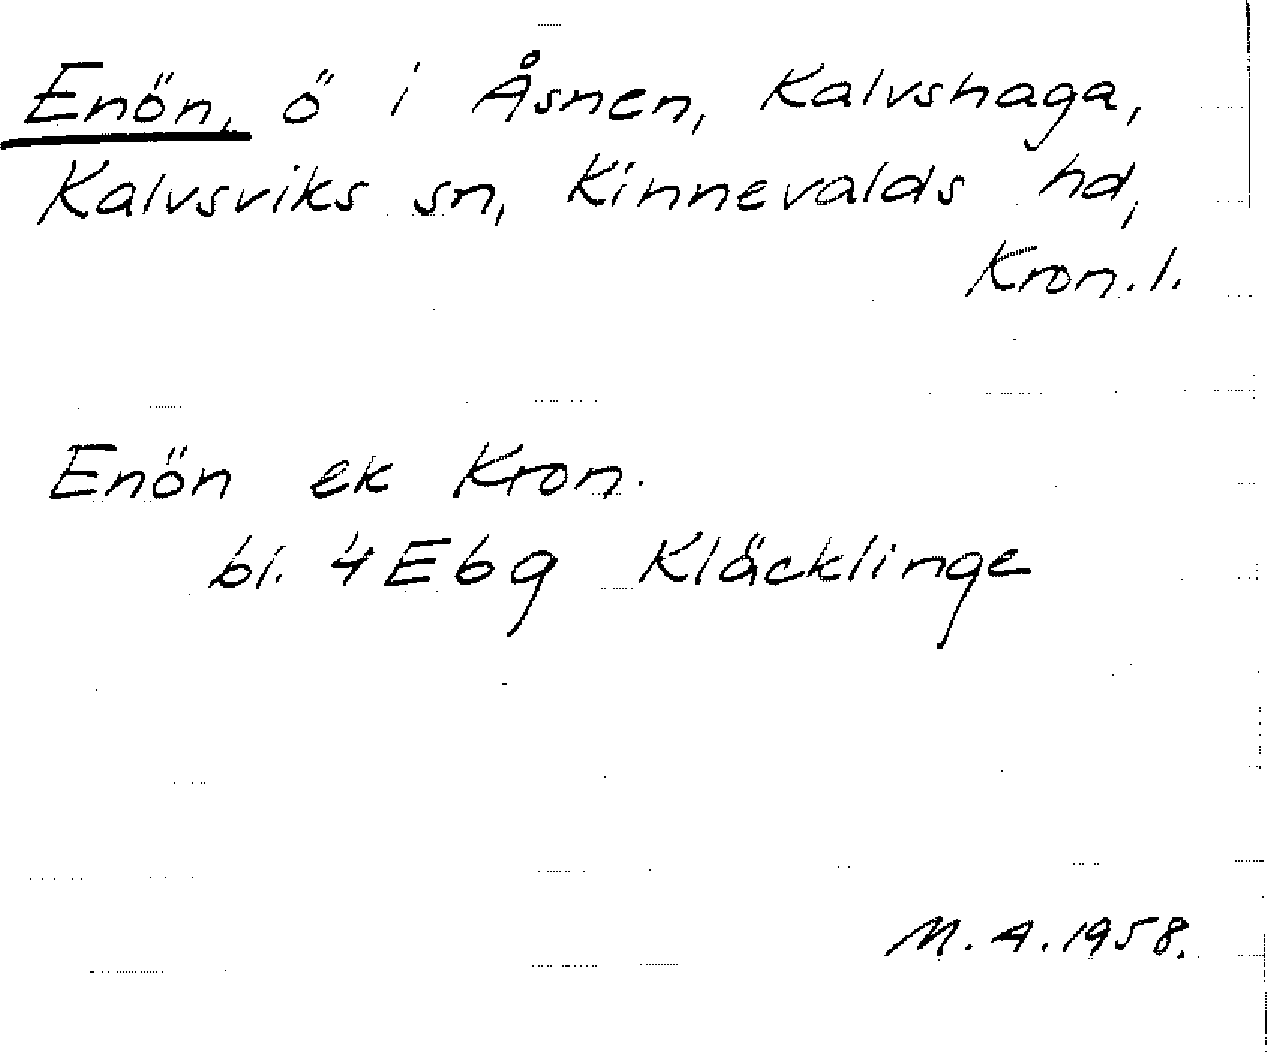 Enön, ö i Åsnen, Kalvshaga,
Kalvsviks sn, Kinnevalds hd,
Kron. l.
Enön ek Kron.
bl. 4E6g Kläcklinge
M. A. 1958.